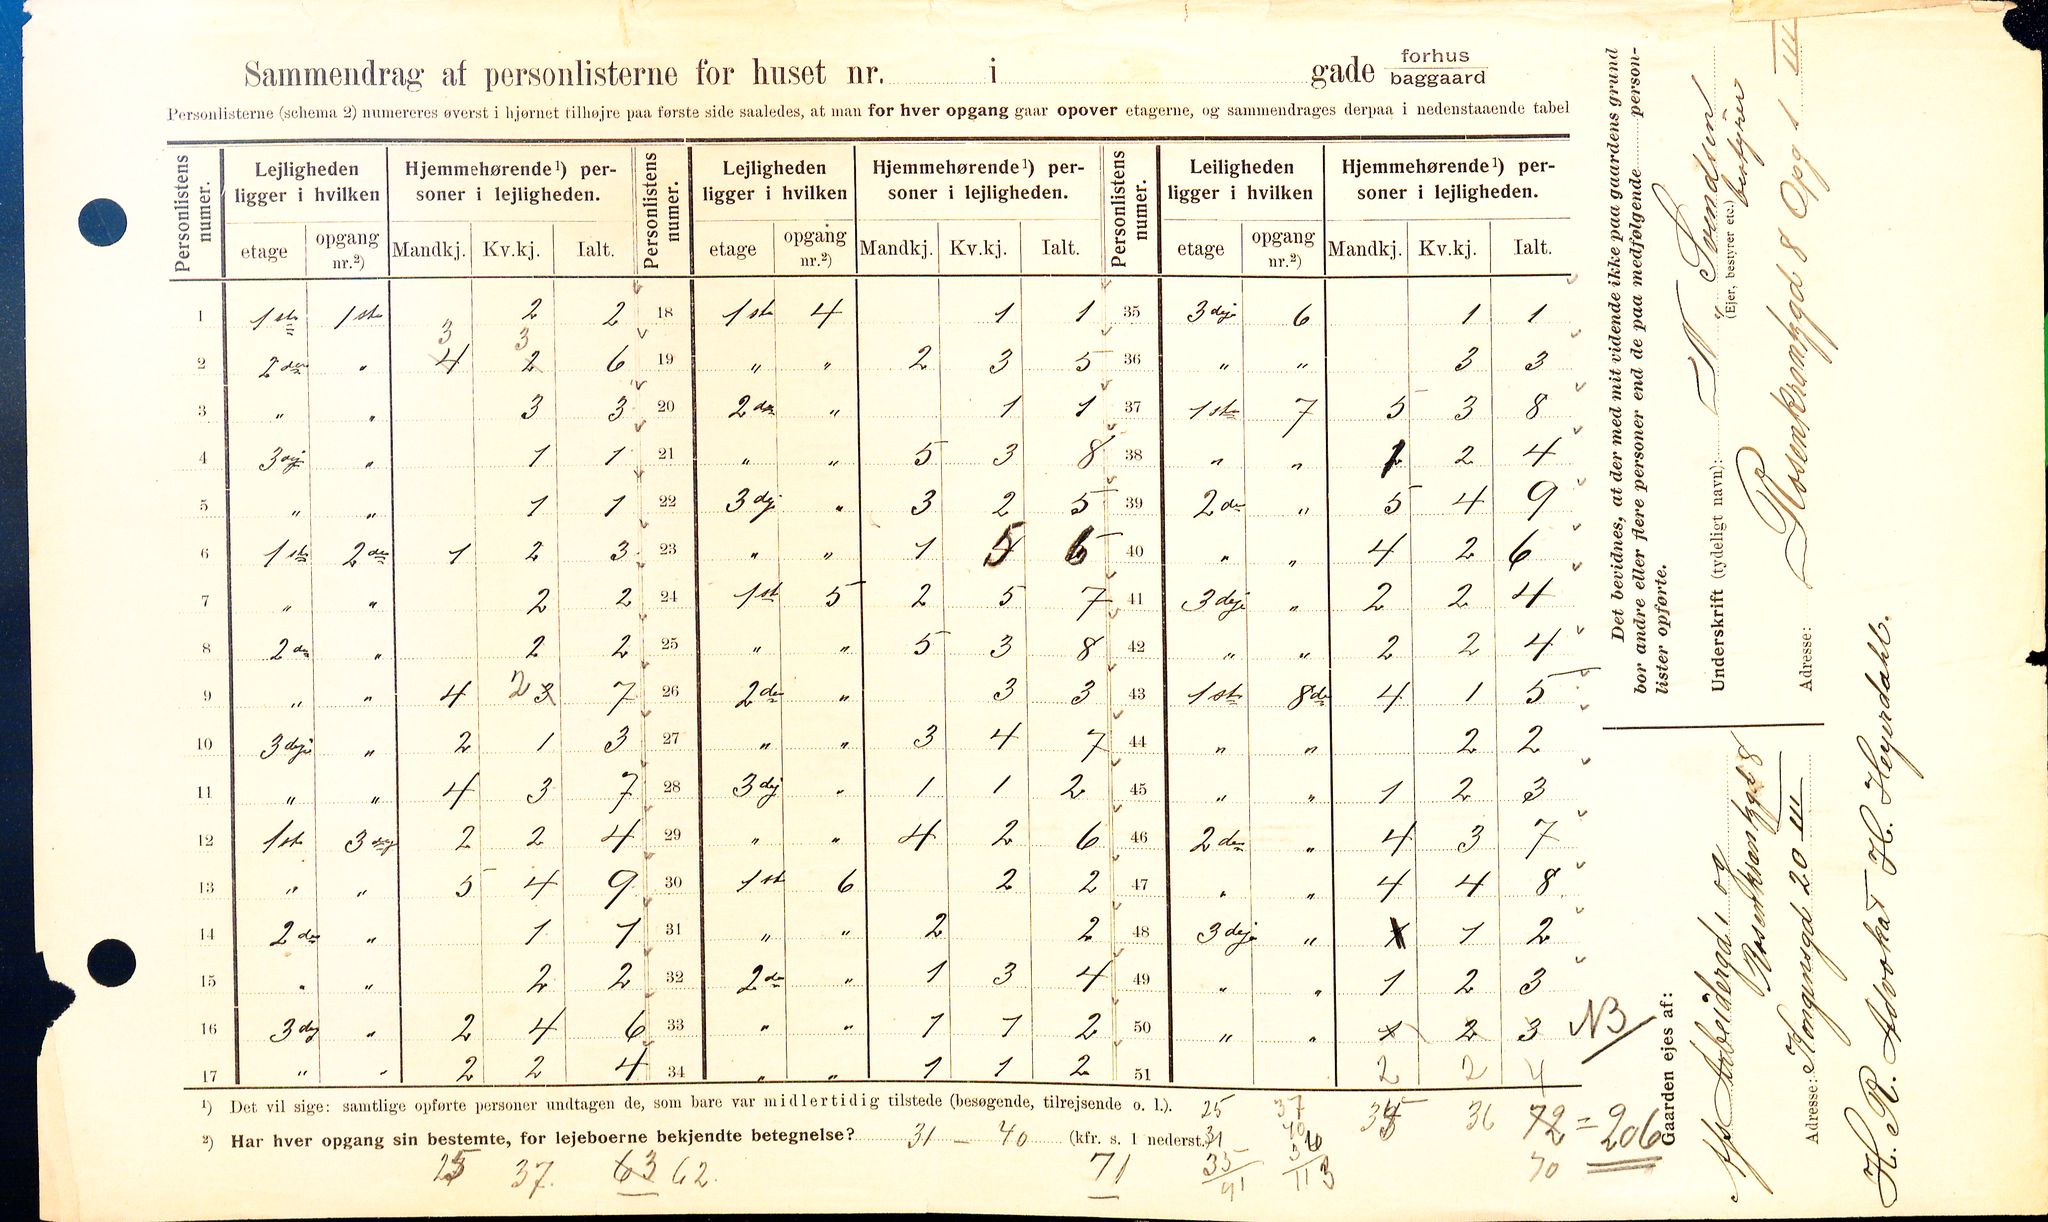 Sammendrag af personlisterne for huset nr. i gade forhus baggaard
Personlisterne (schema 2) numereres øverst i hjørnet tilhøjre paa første side saaledes, at man for hver opgang gaar opover etagerne, og sammendrages derpaa i nedenstaaende tabel
Personlistens numer. Lejligheden ligger i hvilken Hjemmehørende¹) personer i lejligheden. Personlistens numer. Lejligheden ligger i hvilken Hjemmehørende¹) personer i lejligheden. Personlistens numer. Leiligheden ligger i hvilken Hjemmehørende¹) personer i lejligheden.
etage opgang nr.²) Mandkj. Kv.kj. Ialt. etage opgang nr.²) Mandkj. Kv.kj. Ialt. etage opgang nr.²) Mandkj. Kv.kj. Ialt.
1 1ste 1ste 2 2 18 1ste 4 1 1 35 3dje 6 1 1
3 3
2 2den " 4 2 6 19 " " 2 3 5 36 " " 3 3
3 " " 3 3 20 2den " 1 1 37 1ste 7 5 3 8
4 3dje " 1 1 21 " " 5 3 8 38 " " 2 2 4
5 " " 1 1 22 3dje " 3 2 5 39 2den " 5 4 9
6 1ste 2den 1 2 3 23 " " 1 5 6 40 " " 4 2 6
7 " " 2 2 24 1ste 5 2 5 7 41 3dje " 2 2 4
8 2den " 2 2 25 " " 5 3 8 42 " " 2 2 4
9 " " 4 2 3 7 26 2den " 3 3 43 1ste 8de 4 1 5
10 3dje " 2 1 3 27 " " 3 4 7 44 " " 2 2
11 " " 4 3 7 28 3dje " 1 1 2 45 " " 1 2 3
12 1ste 3dje 2 2 4 29 " " 4 2 6 46 2den " 4 3 7
13 " " 5 4 9 30 1ste 6 2 2 47 " " 4 4 8
14 2den " 1 1 31 " " 2 2 48 3dje " 1 1 2
15 " " 2 2 32 2den " 1 3 4 49 " " 1 2 3
16 3dje " 2 4 6 33 " " 1 1 2 50 " " 1 2 3 NB
17 " " 2 2 4 34 " " 1 1 2 51 2 2 4
¹) Det vil sige: samtlige opførte personer undtagen de, som bare var midlertidig tilstede (besøgende, tilrejsende o. l.). 25 37 35 36 72 = 206
²) Har hver opgang sin bestemte, for lejeboerne bekjendte betegnelse? 31 – 40 (kfr. s. 1 nederst.) 31 40
25 37. 63 62. 71 35 36 70
91 113
Det bevidnes, at der med mit vidende ikke paa gaardens grund
bor andre eller flere personer end de paa medfølgende personlister opførte.
Underskrift (tydeligt navn): N Svendsen
(Ejer, bestyrer etc.) bestyrer
Adresse: Rosenkrantzgd 8 Opg 1 III
Gaarden ejes af: A/S Arbeidergd, og
Rosenkrantzgd 8
Adresse: Kongensgd 20 III
H. R. Advokat H. Heyerdahl.